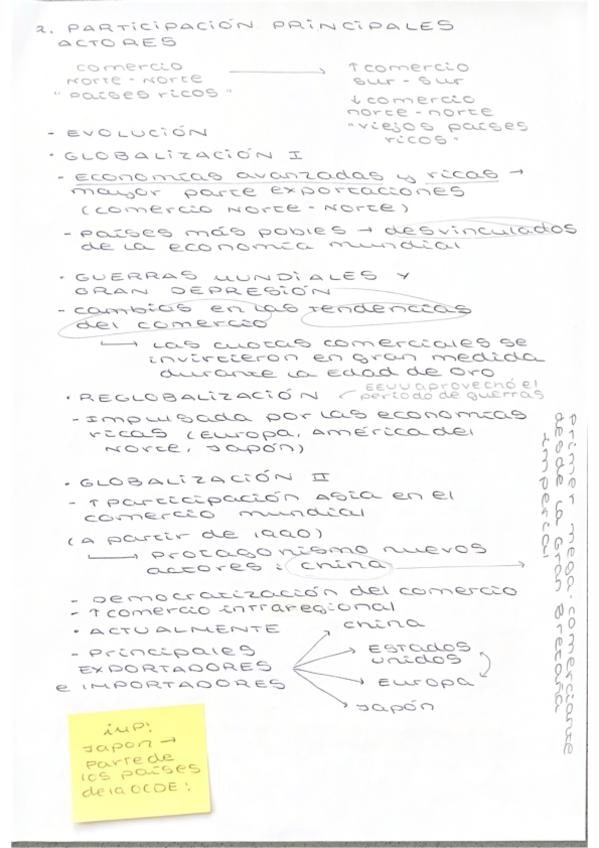 2. PARTICIPACIÓN PRINCIPALES
ACTORES
comercio
Norte - Norte
"países ricos"
→
↑ comercio
sur - sur
↓ comercio
norte - norte
"viejos países
ricos"
- EVOLUCIÓN
· GLOBALIZACIÓN I
- Economías avanzadas y ricas →
mayor parte exportaciones
(comercio Norte - Norte)
- países más pobles → desvinculados
de la economía mundial
· GUERRAS MUNDIALES Y
GRAN DEPRESIÓN
- cambios en las tendencias
del comercio
→ Las cuotas comerciales se
invirtieron en gran medida
durante la edad de oro
· REGLOBALIZACIÓN
EEUU aprovechó el
período de guerras
- Impulsada por las economías
ricas (Europa, América del
Norte, Japón)
· GLOBALIZACIÓN II
- ↑ participación Asia en el
comercio mundial
(a partir de 1990)
→ protagonismo nuevos
actores : china →
primer mega-comerciante
desde la Gran Bretaña
imperial
- Democratización del comercio
- ↑ comercio intraregional
· ACTUALMENTE
- principales
EXPORTADORES
e IMPORTADORES
china
Estados
unidos
Europa
Japón
imp!
Japon →
parte de
los países
de la OCDE :